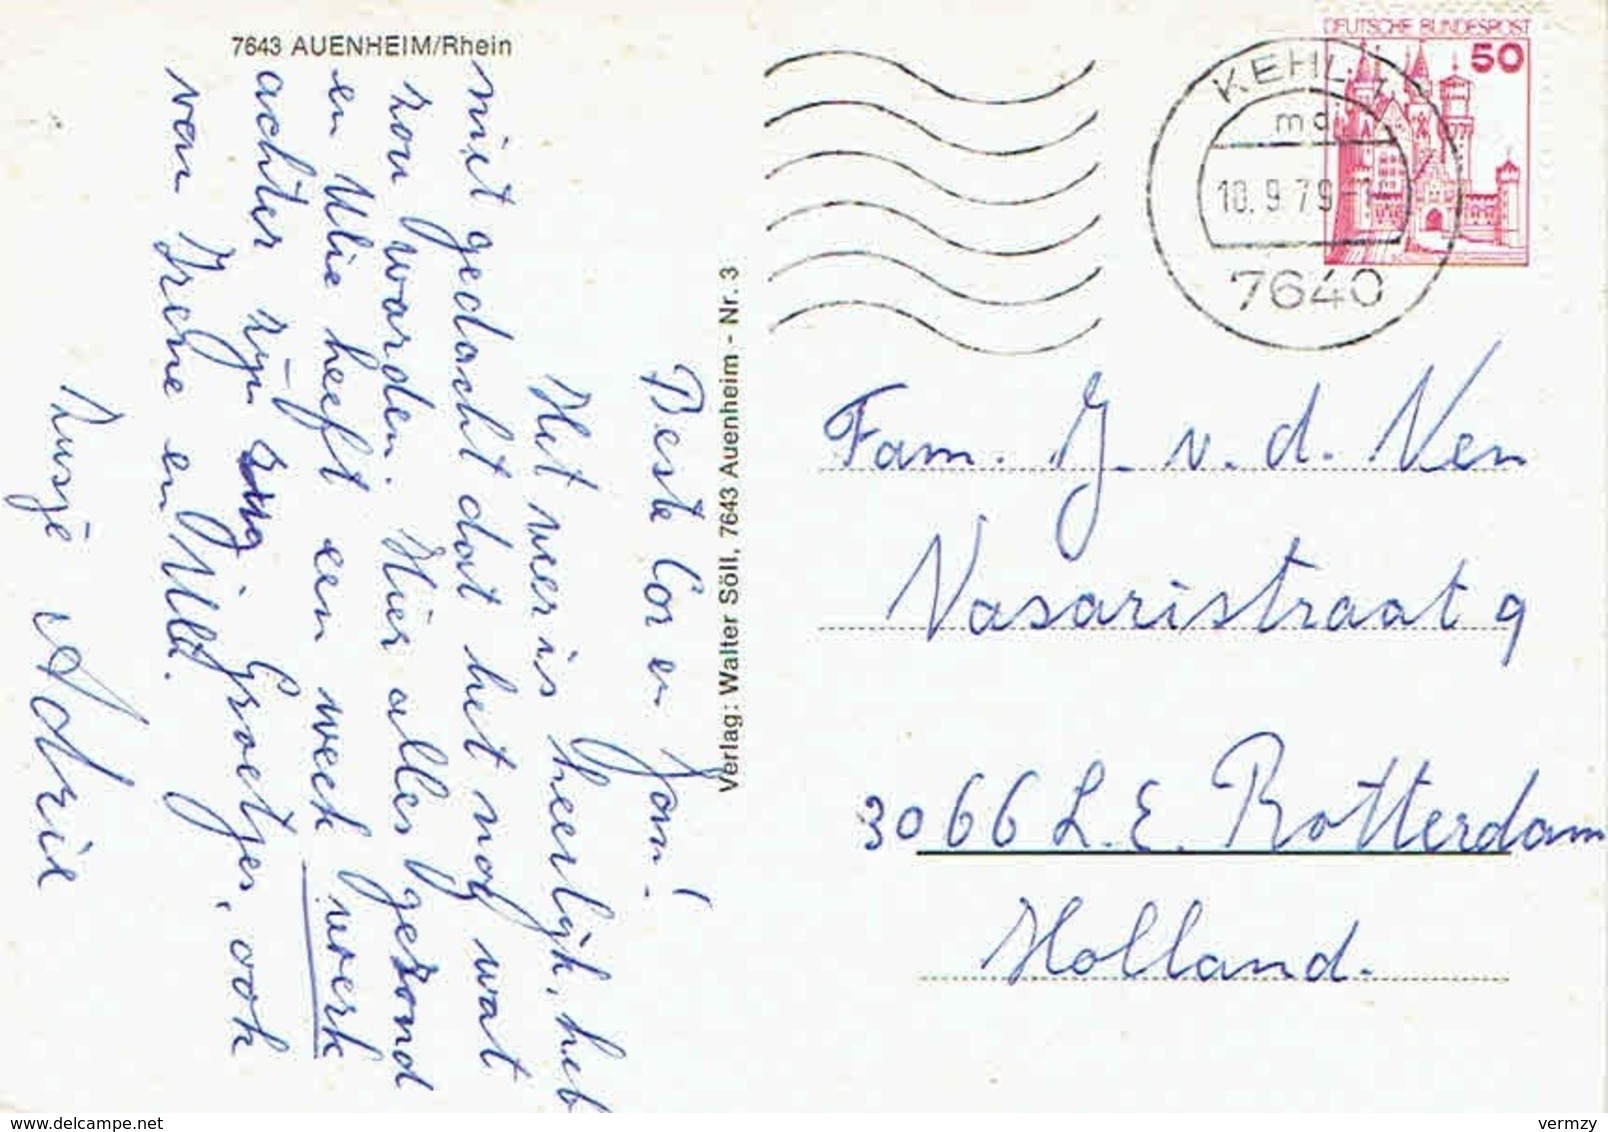 7643 AUENHEIM/Rhein
Beste Cor en Jan!
Het weer is heerlijk, heb
niet gedacht dat het nog wat
zou warden. Hier alles gezond
en Ulie heeft een week werk
achter zijn rug Groetjes, ook
van Irene en Ulli.
Zusje Adrie
Verlag: Walter Söll, 7643 Auenheim - Nr. 3
DEUTSCHE BUNDESPOST
50
KEHL 1
10.9.79
7640
Fam. J. v. d. Ven
Vasaristraat 9
3066 L.E. Rotterdam
Holland.
delcampe.net
vermzy